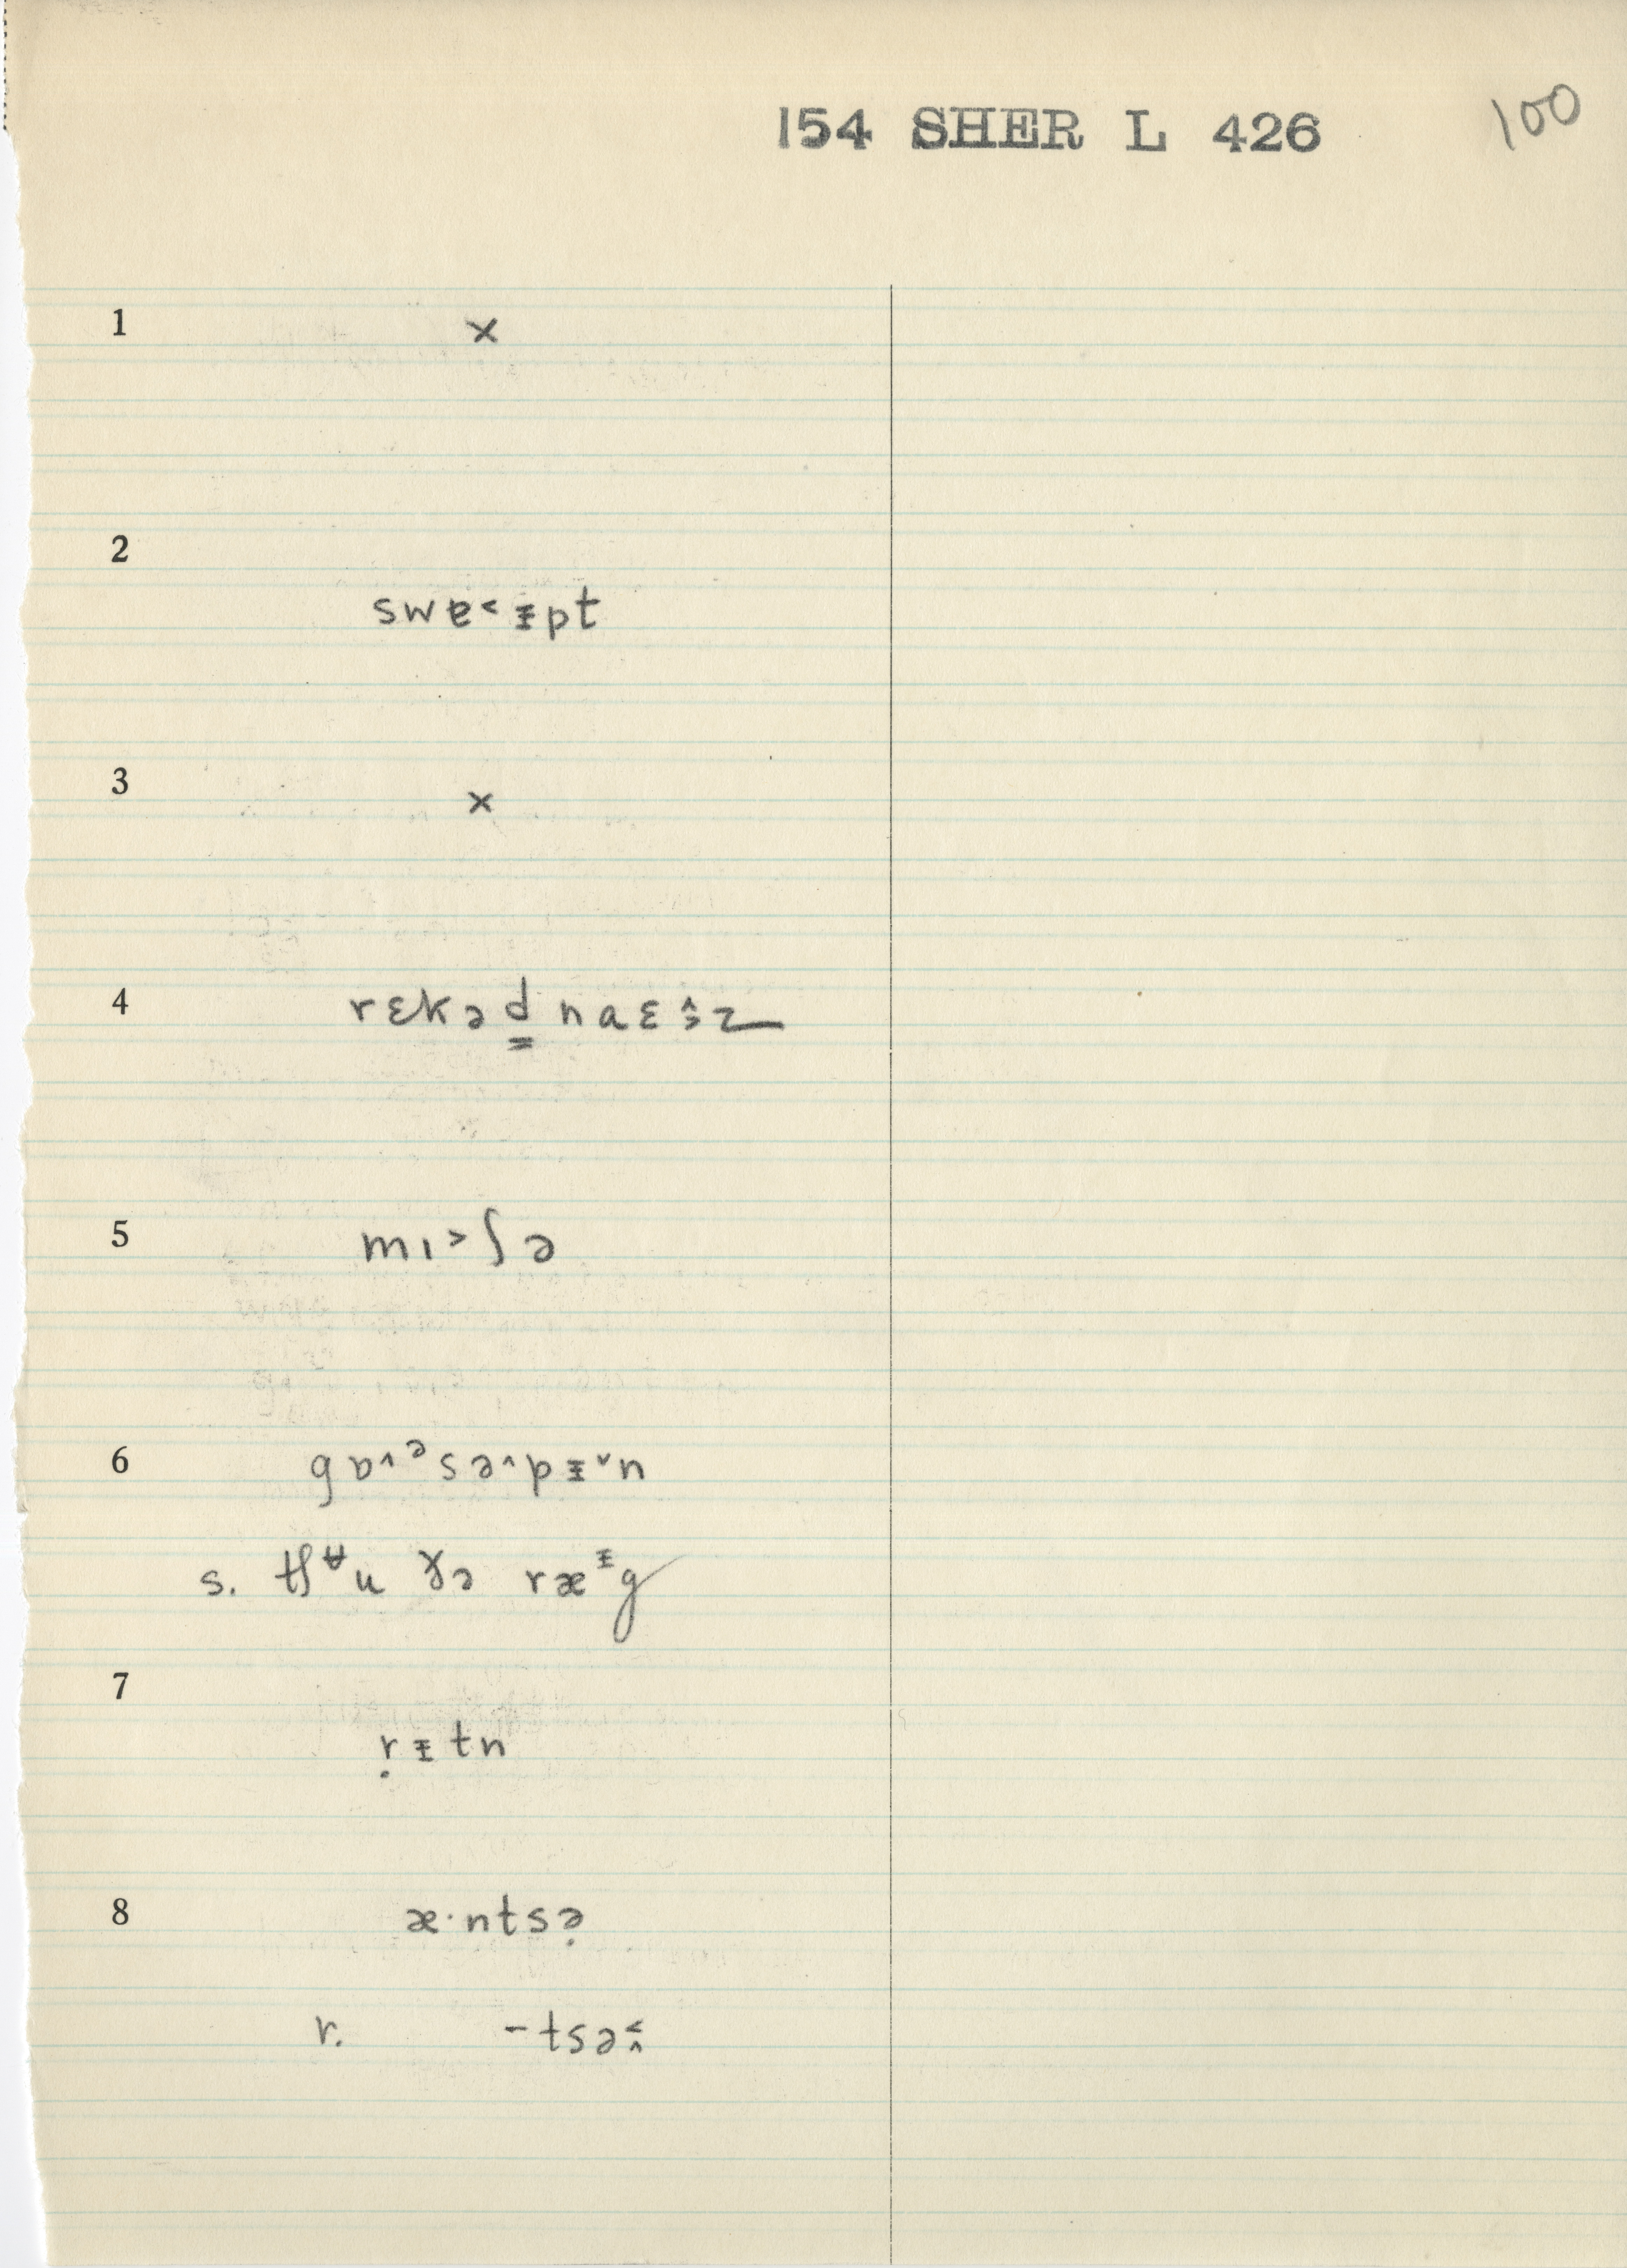 154 SHER L 426 100
1 ×
2
swɐ˂ᵻpt
3 ×
4 rɛkəd̳ naɛɜ̂z
5 mı˃ʃə
6 gɒ˄ᵊsə˄pᵻ˅n
s. tʃᵾu ɣə ræᵻg
7
ṛᵻtn
8 æ·ntsə̣
r. -tsə˂˄